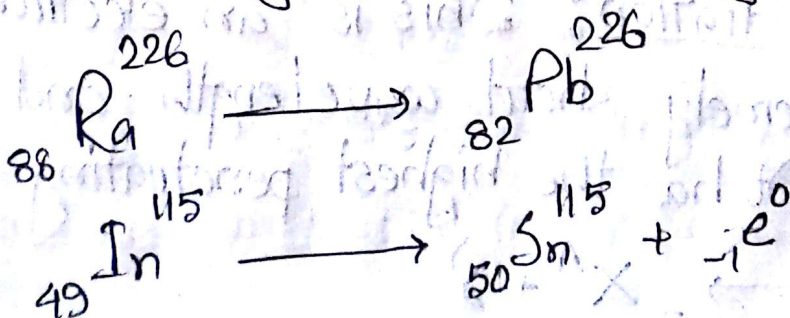 ₈₈Ra²²⁶ ⟶ ₈₂Pb²²⁶
₄₉In¹¹⁵ ⟶ ₅₀Sn¹¹⁵ + ₋₁e⁰